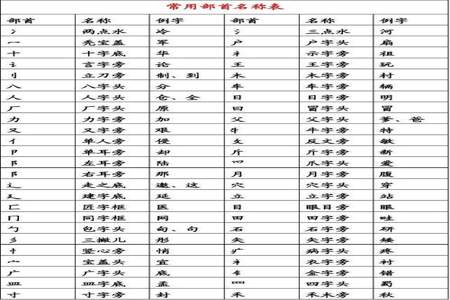 常用部首名称表
部首 名称 例字 部首 名称 例字
冫 两点水 冷 氵 三点水 河
冖 秃宝盖 军 户 户字头 扇
十 十字底 华 礻 示字旁
讠 言字旁 论 王 王字旁 玩
刂 立刀旁 制、到 木 木字旁 村
八 八字头 分 车 车字旁 辆
人 人字头 仓、全 日 日字旁 明
厂 厂字头 原 冒字头 冒
力 力字旁 加 父 父字头 爹、爸
又 又字旁 艰 牛字旁 特
亻 单人旁 侵 攵 反文旁 敏
卩 单耳旁 却 斤 斤字旁 新
阝 左耳旁 陆 爫 爪字头 爱
阝 右耳旁 那 月 月字旁 腹
辶 走之底 邀、这 穴 穴字头 穿
廴 建字底 延 立 立字旁 站
匚 匠字框 医 目 眼目旁 眼
冂 同字框 网 田字旁
勹 包字头 句、勾 石 石字旁 研
彡 三撇儿 矢 矢字旁 矮
忄 竖心旁 悄 疒 病字头 疼
宀 宝盖头 宜 衤 衣字旁
广 广字头 底 金字旁 错
皿 皿字底 罒 四字头 蜀
寸 寸字旁 封 禾 禾木旁 秋